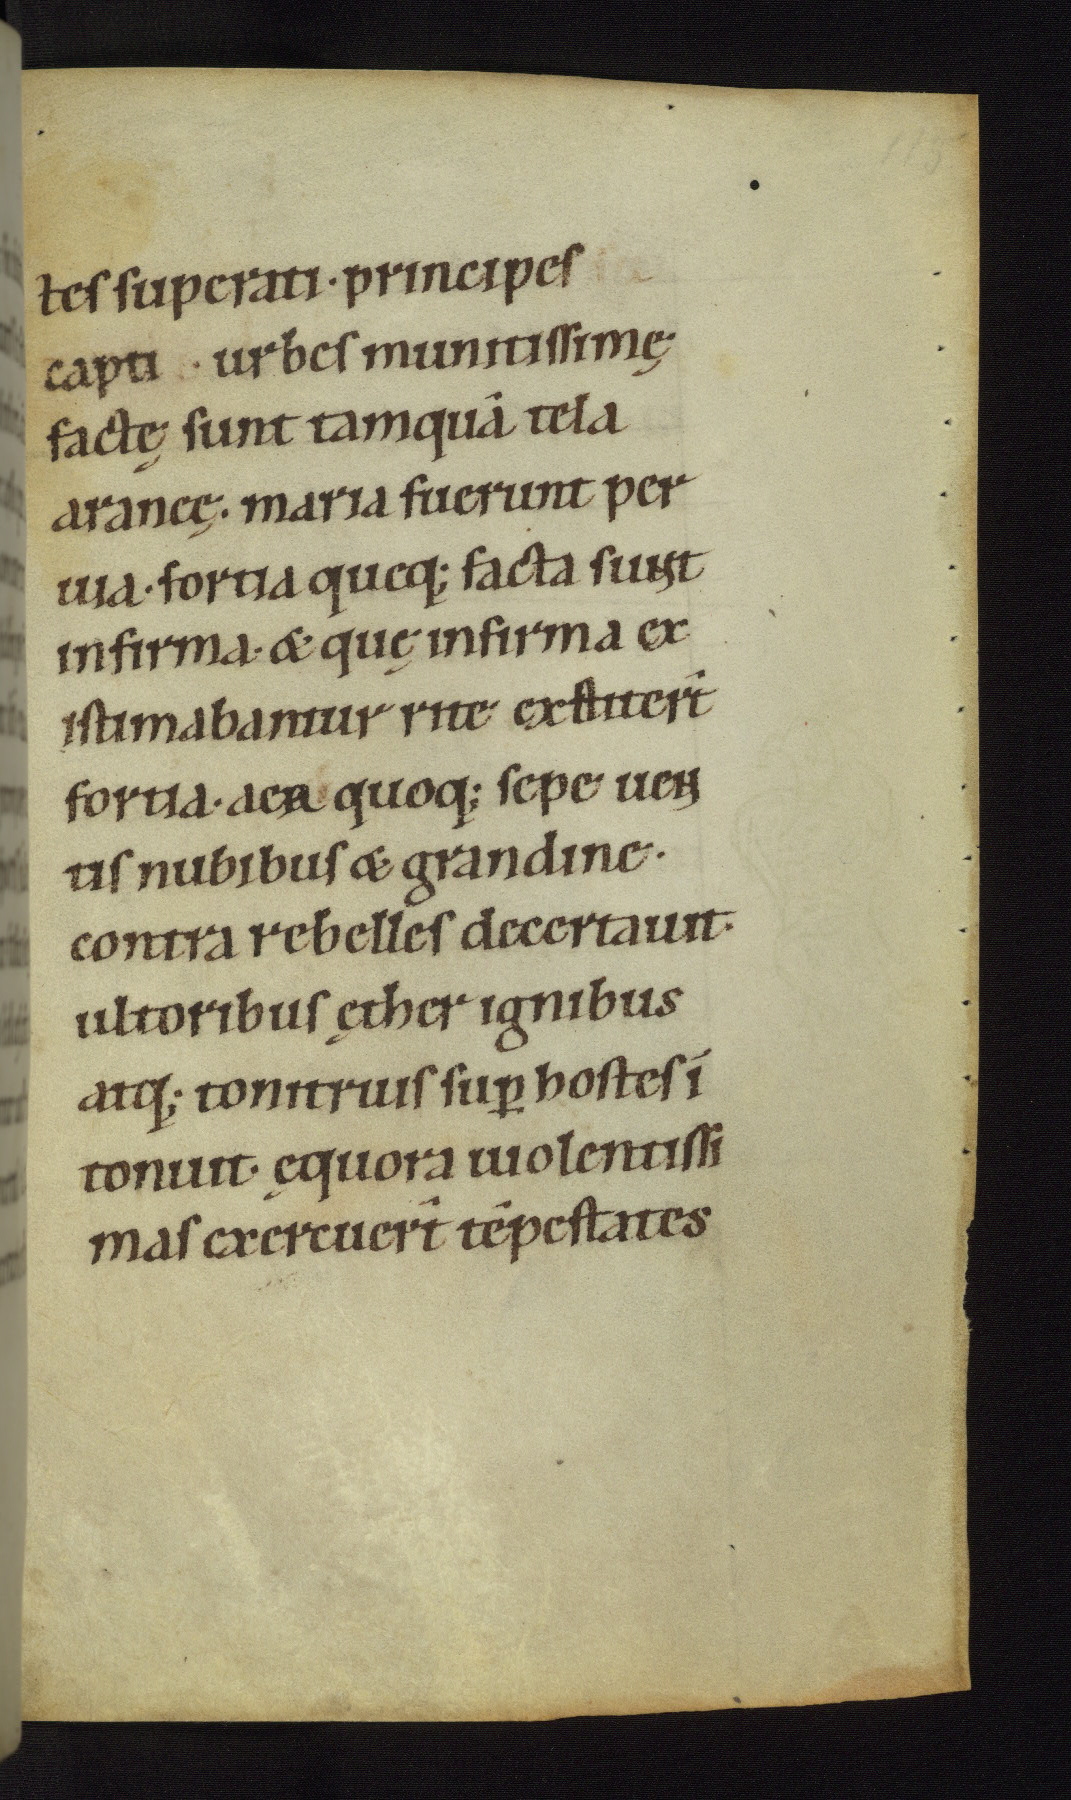 115
tes superati · principes
capti · urbes munitissimę
factę sunt tamquā tela
araneę · maria fuerunt per
uia · fortia queq; facta sunt
infirma · & quę infirma ex
istimabantur rite exstiterī
fortia · aera quoq; sepe uen
tis nubibus & grandine ·
contra rebelles decertaunt ·
ultoribus ęther ignibus
atq; tonitruis suꝑ hostes ī
tonuit · ęquora uiolentissi
mas exercuerī tēpestates